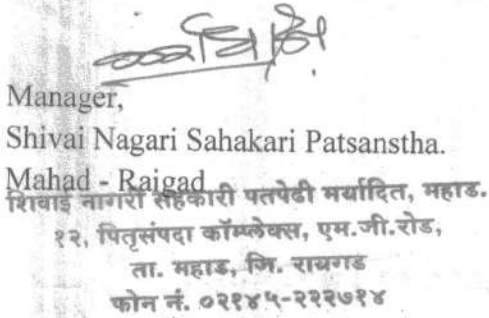 Manager,
Shivai Nagari Sahakari Patsanstha.
Mahad - Raigad
शिवाई नागरी सहकारी पतपेढी मर्यादित, महाड.
१२, पितृसंपदा कॉम्प्लेक्स, एम.जी.रोड,
ता. महाड, जि. रायगड
फोन नं. ०२१४५-२२२७१४